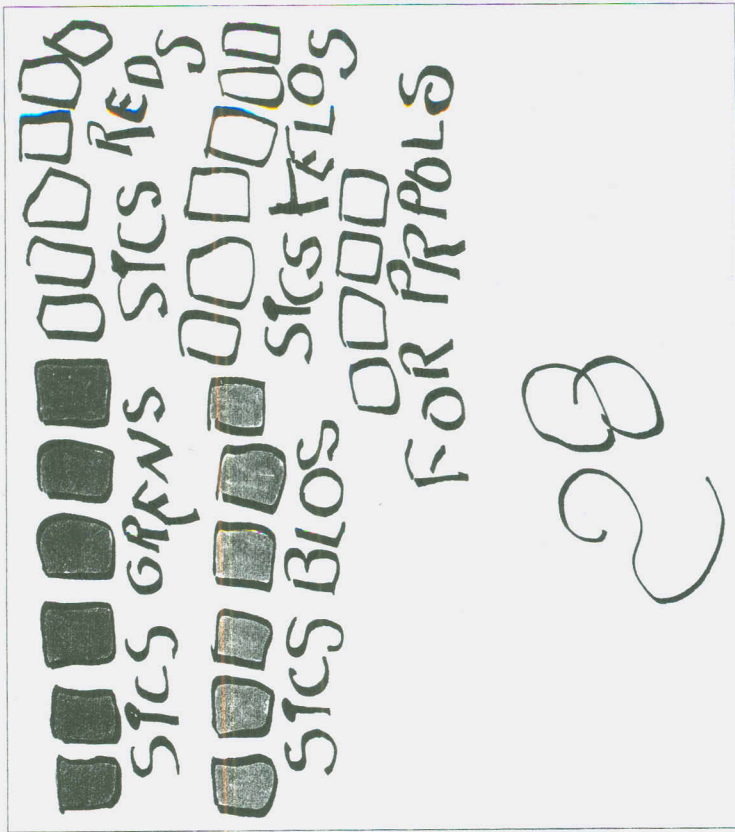 SICS GRENS SICS REDS
SICS BLOS SICS YELOS
FOR PRPOLS
28